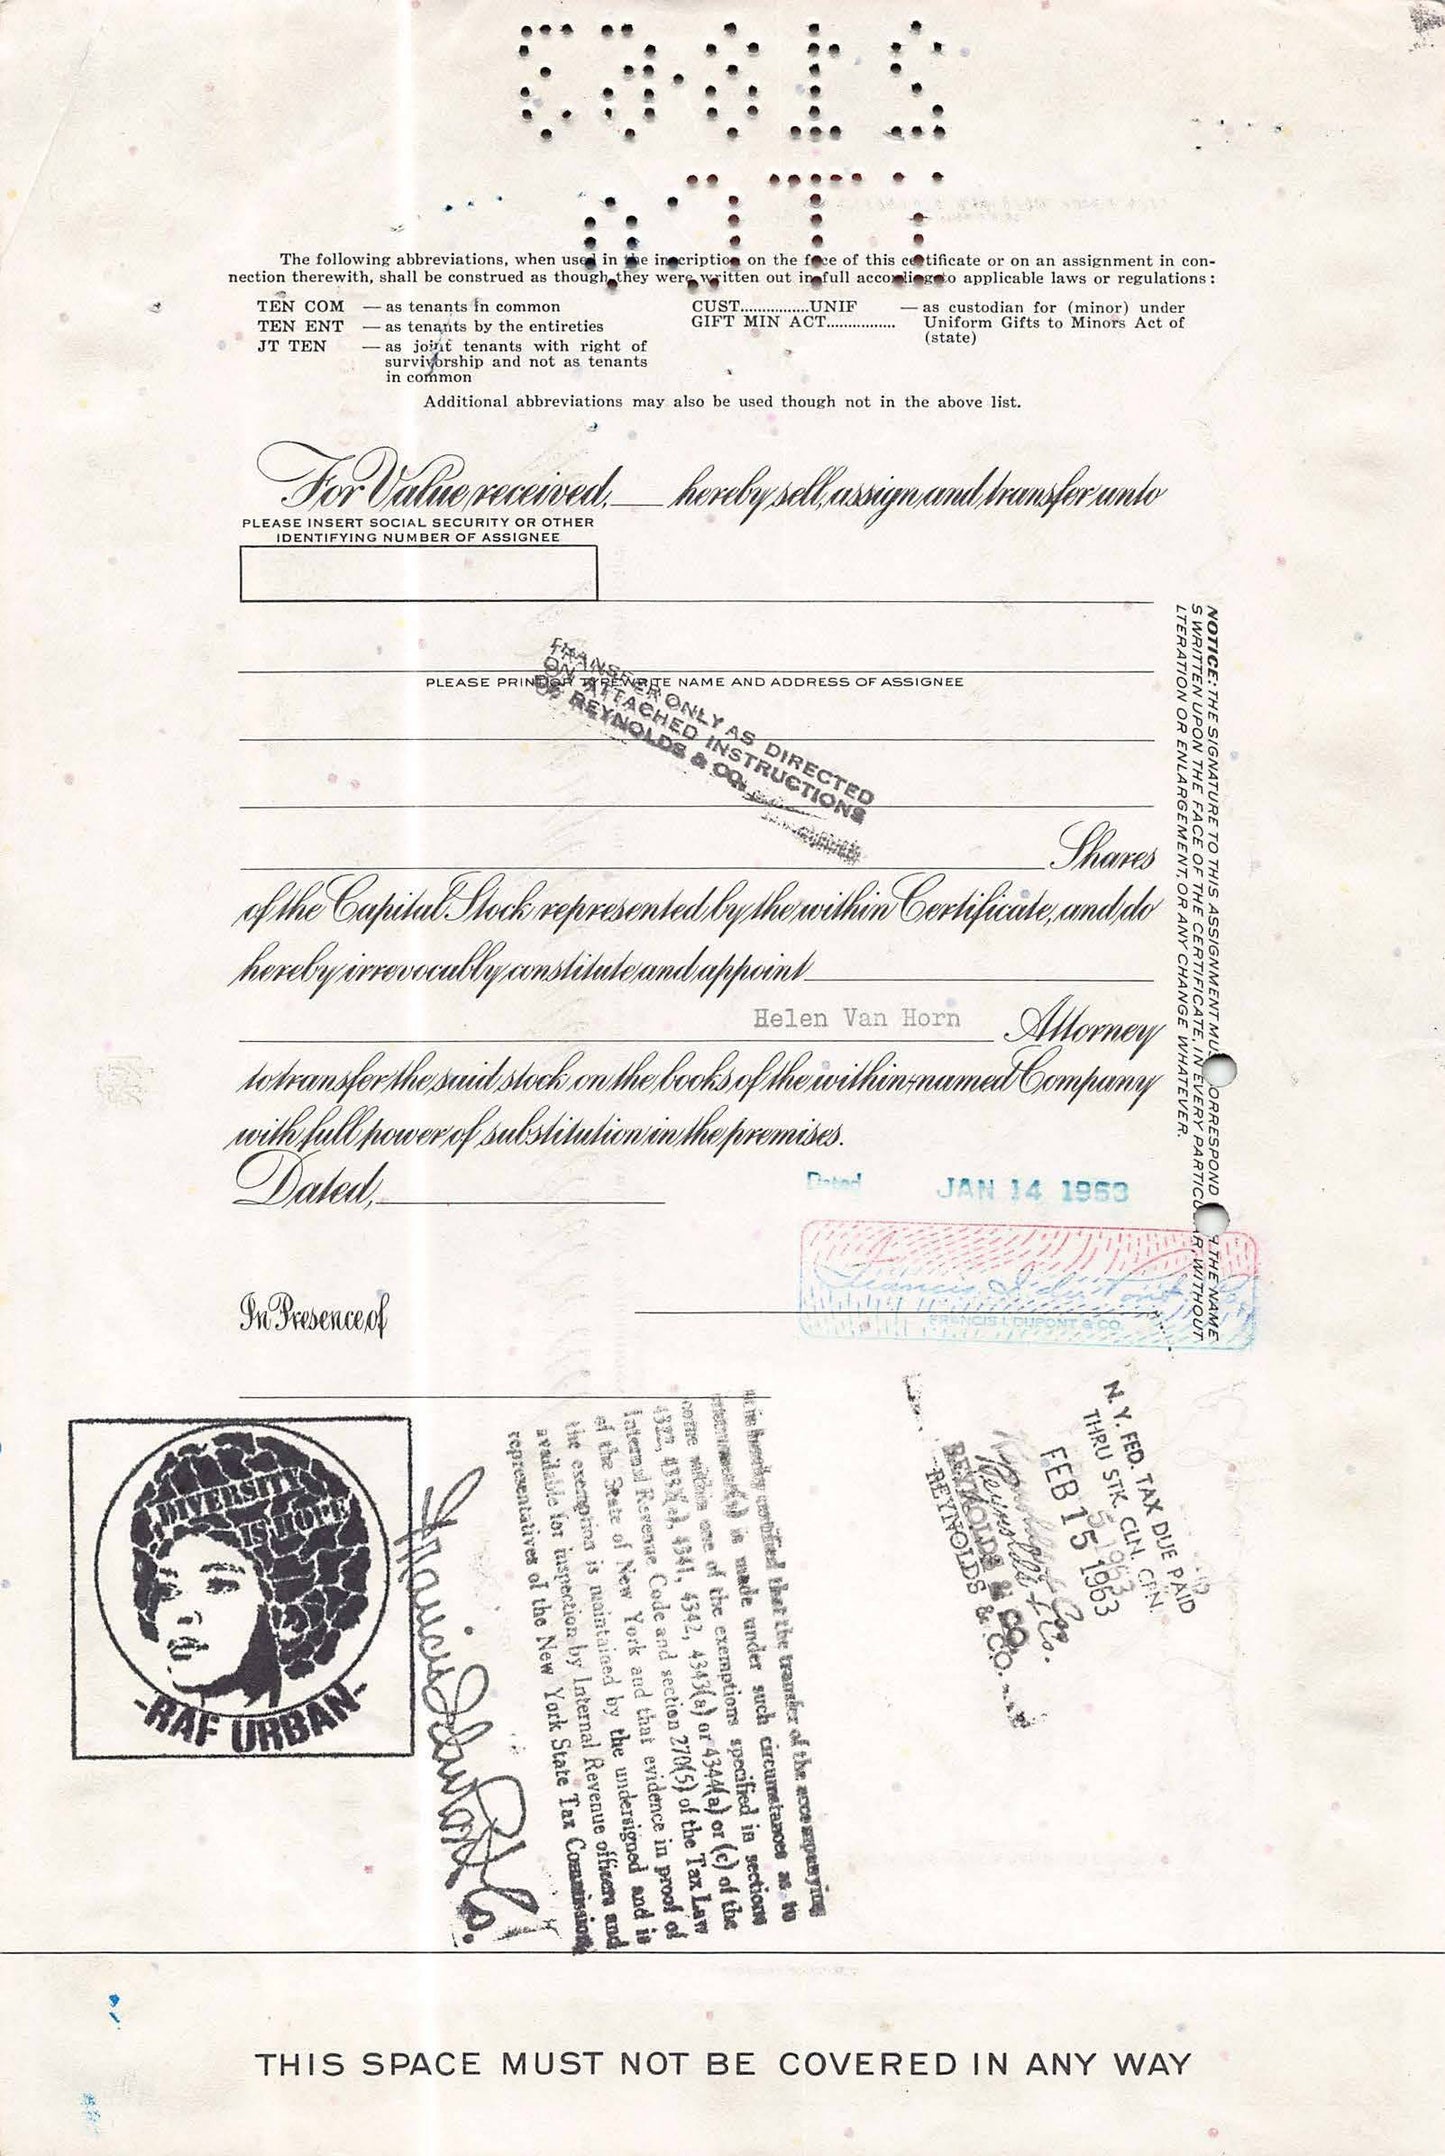 The following abbreviations, when used in the inscription on the face of this certificate or on an assignment in con-
nection therewith, shall be construed as though they were written out in full according to applicable laws or regulations:
TEN COM — as tenants in common
TEN ENT — as tenants by the entireties
JT TEN — as joint tenants with right of
survivorship and not as tenants
in common
CUST................UNIF — as custodian for (minor) under
GIFT MIN ACT................ Uniform Gifts to Minors Act of
(state)
Additional abbreviations may also be used though not in the above list.
For Value received, ___ hereby sell, assign and transfer unto
PLEASE INSERT SOCIAL SECURITY OR OTHER
IDENTIFYING NUMBER OF ASSIGNEE
PLEASE PRINT OR TYPEWRITE NAME AND ADDRESS OF ASSIGNEE
TRANSFER ONLY AS DIRECTED
ON ATTACHED INSTRUCTIONS
OF REYNOLDS & CO.
Shares
of the Capital Stock represented by the within Certificate, and do
hereby irrevocably constitute and appoint
Helen Van Horn Attorney
to transfer the said stock on the books of the within-named Company
with full power of substitution in the premises.
Dated,
Dated JAN 14 1963
In Presence of
Francis I. duPont & Co.
FRANCIS I. DUPONT & CO.
NOTICE: THE SIGNATURE TO THIS ASSIGNMENT MUST CORRESPOND THE NAME
S WRITTEN UPON THE FACE OF THE CERTIFICATE, IN EVERY PARTICULAR, WITHOUT
LTERATION OR ENLARGEMENT, OR ANY CHANGE WHATEVER.
N. Y. FED. TAX DUE PAID
THRU STK. CLN. CPN.
FEB 15 1963
Reynolds & Co.
REYNOLDS & CO.
REYNOLDS & CO.
it is hereby certified that the transfer of the accompanying
is made under such circumstances as to
come within one of the exemptions specified in sections
4341, 4342, 4343(a) or 4344(a) or (c) of the
Internal Revenue Code and section 270(5) of the Tax Law
of the State of New York and that evidence in proof of
the exemption is maintained by the undersigned and is
available for inspection by Internal Revenue officers and
representatives of the New York State Tax Commission
Francis I. duPont & Co.
DIVERSITY
IS HOPE
-RAF URBAN-
THIS SPACE MUST NOT BE COVERED IN ANY WAY